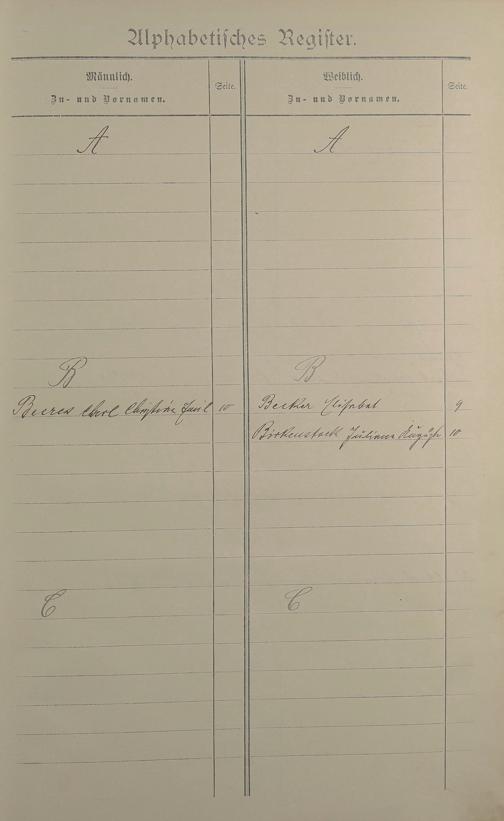 Alphabetisches Register.
Männlich.
Zu- und Vornamen.
Seite.
Weiblich.
Zu- und Vornamen.
Seite.
A
A
B
B
Carl Christian Emil 10
Becker Elisabet 9
Birkenstock Juliane August 10
C
C